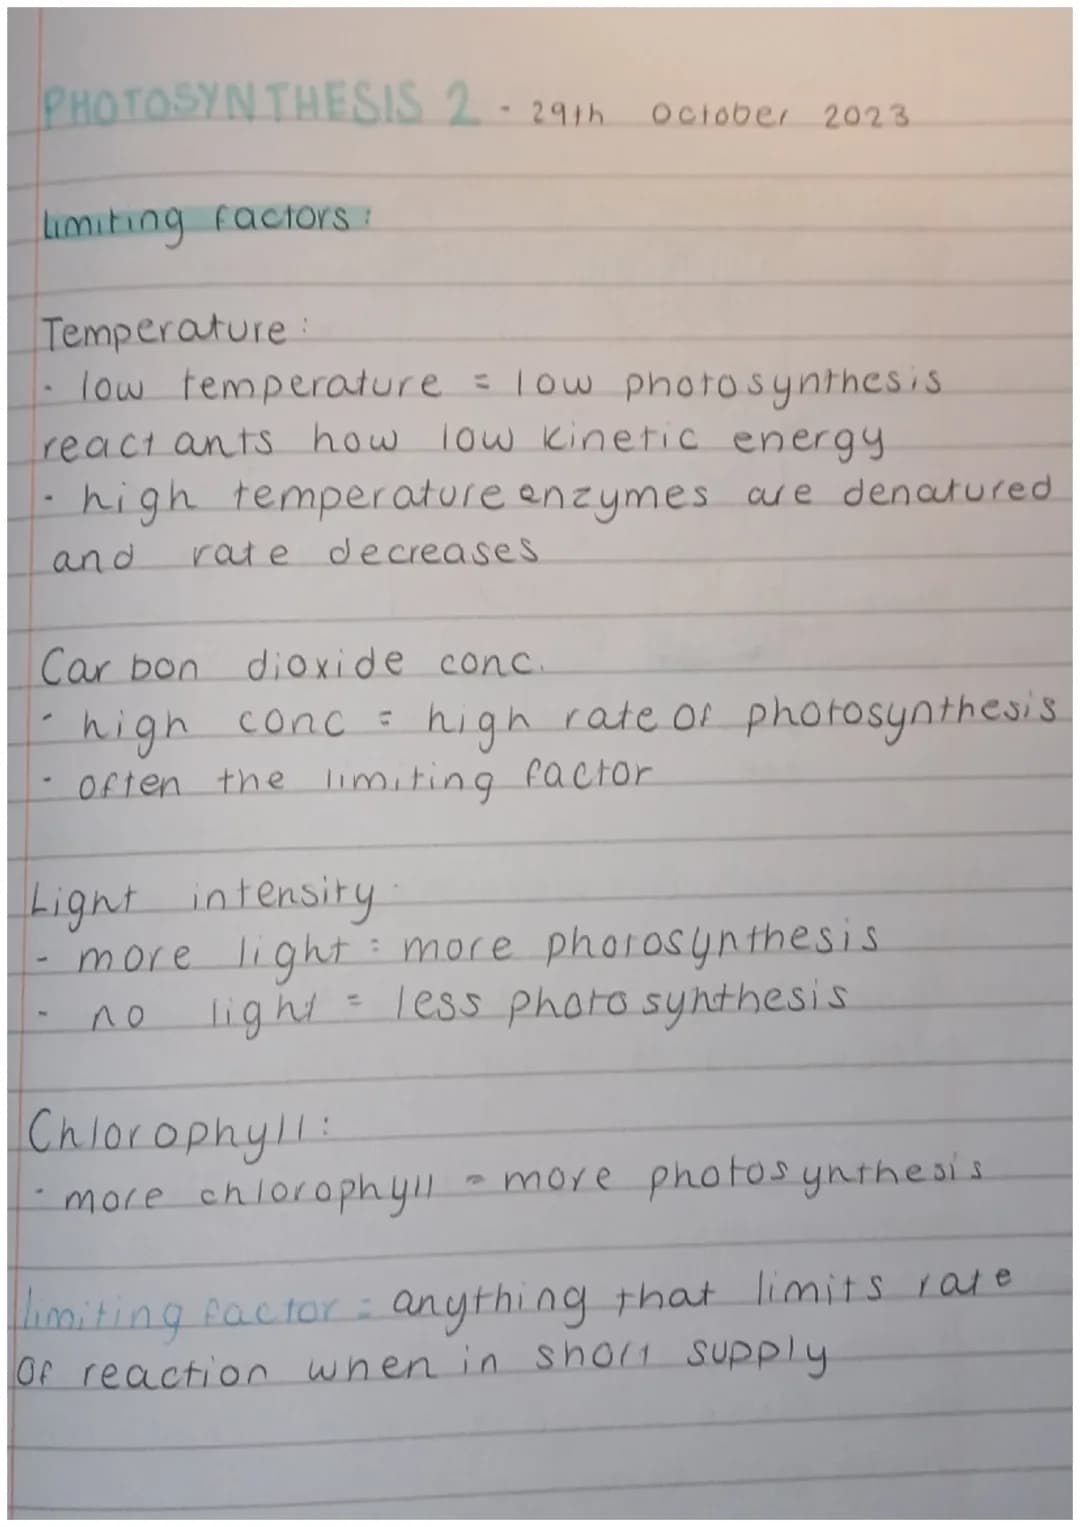 PHOTOSYNTHESIS 2 - 29th October 2023
limiting factors:
Temperature:
· low temperature = low photosynthesis
reactants how low kinetic energy
· high temperature enzymes are denatured
and rate decreases
Carbon dioxide conc.
· high conc = high rate of photosynthesis
· often the limiting factor
Light intensity
- more light = more photosynthesis
- no light = less photosynthesis
Chlorophyll:
· more chlorophyll = more photosynthesis
limiting factor = anything that limits rate
of reaction when in short supply